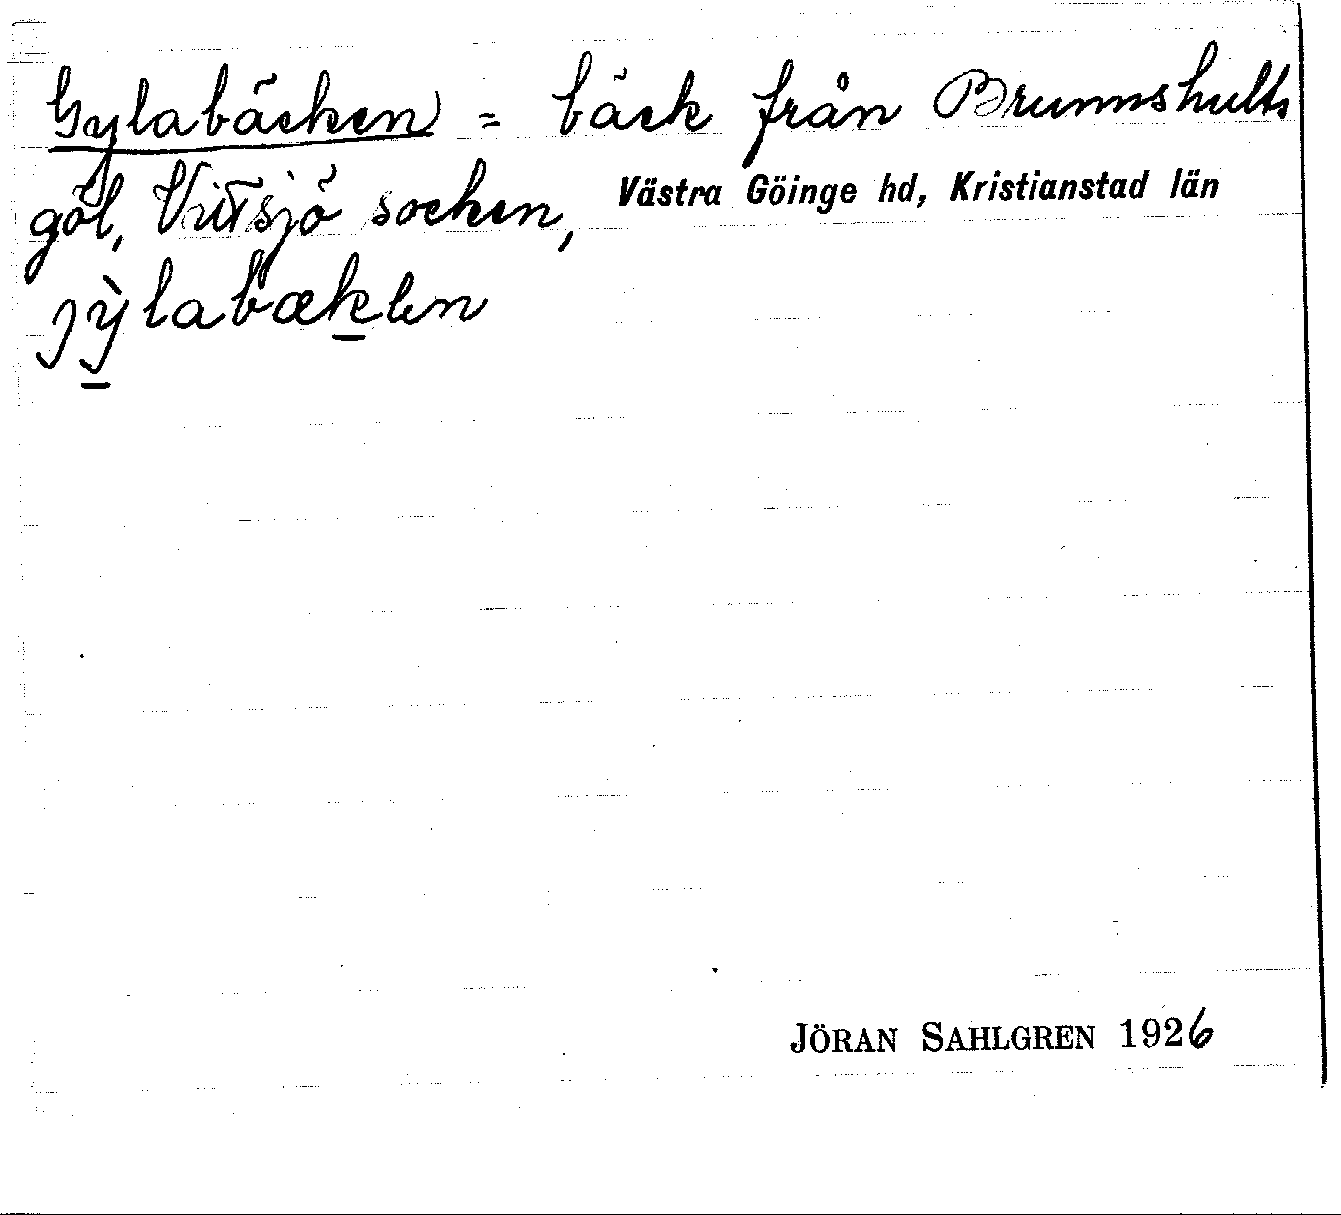 Gylabäcken = bäck från Brunnshults
göl, Vittsjö socken, Västra Göinge hd, Kristianstad län
jỳlabæken
JÖRAN SAHLGREN 1926